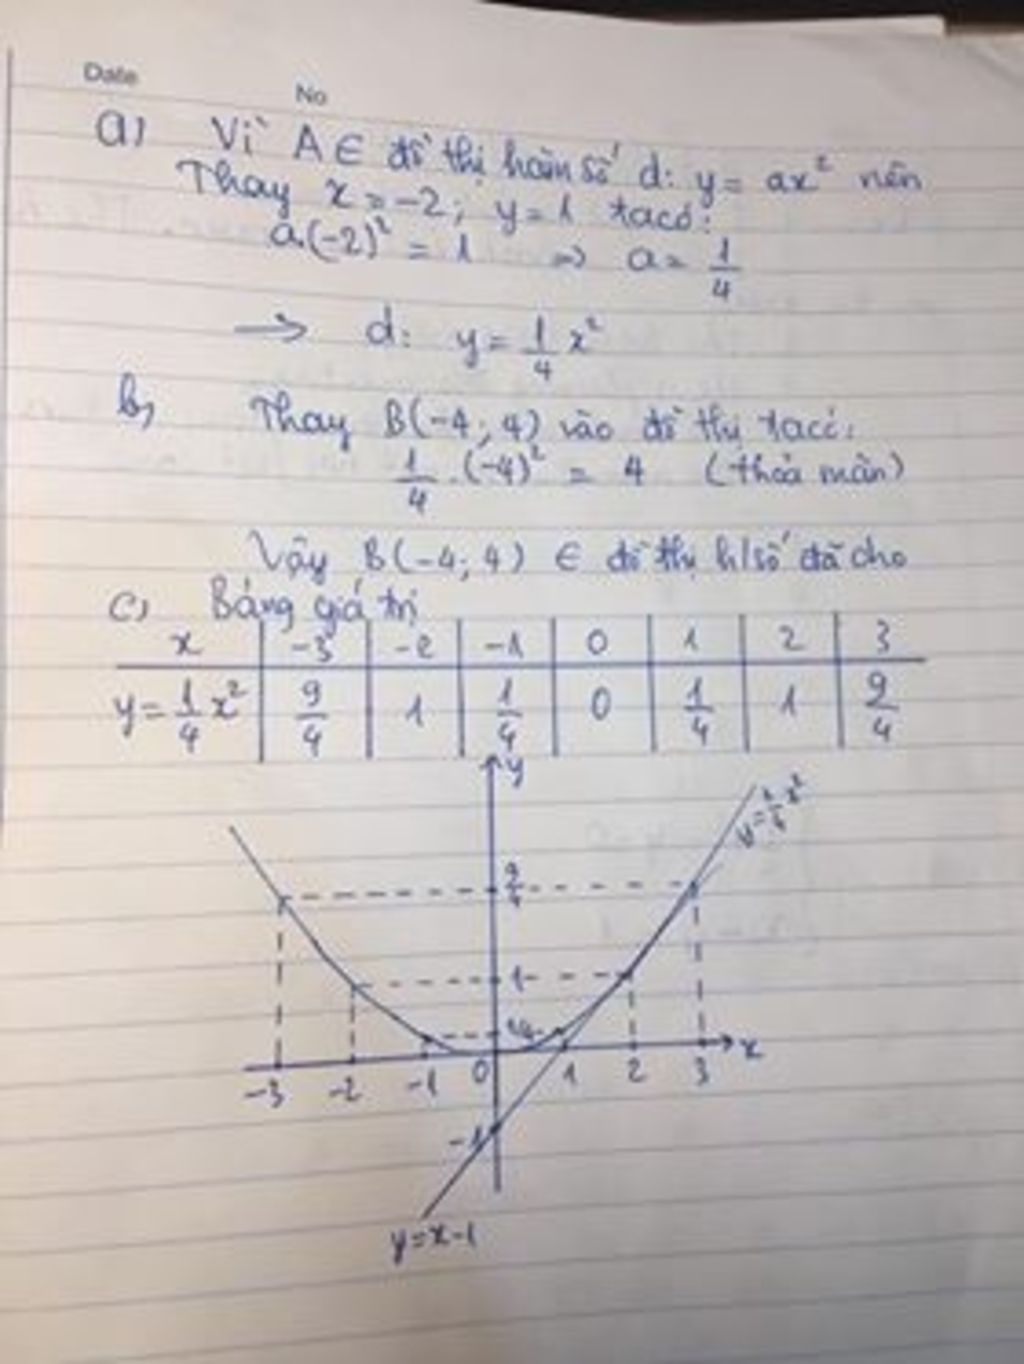 Date
No
a) Vì A ∈ đồ thị hàm số d: y = ax² nên
Thay x = -2; y = 1 ta có:
a.(-2)² = 1 => a = 1/4
→ d: y = 1/4 x²
b) Thay B(-4; 4) vào đồ thị ta có:
1/4 . (-4)² = 4 (thỏa mãn)
Vậy B(-4; 4) ∈ đồ thị h/số đã cho
c) Bảng giá trị
x -3 -2 -1 0 1 2 3
y = 1/4 x² 9/4 1 1/4 0 1/4 1 9/4
y
y = 1/4 x²
9/4
1
1/4
-3 -2 -1 0 1 2 3 x
-1
y = x - 1